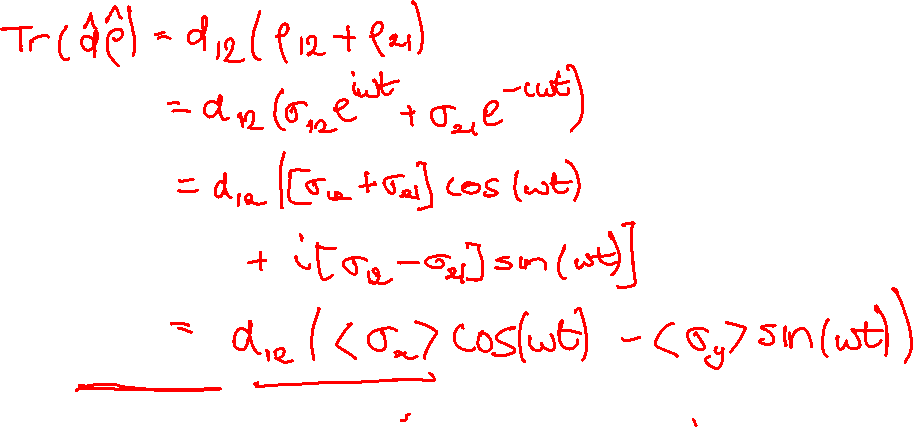 Tr(d̂ρ̂) = d₁₂(ρ₁₂ + ρ₂₁)
= d₁₂(σ₁₂e^{iωt} + σ₂₁e^{-iωt})
= d₁₂([σ₁₂ + σ₂₁] cos(ωt)
+ i[σ₁₂ − σ₂₁] sin(ωt)]
= d₁₂(<σₓ> cos(ωt) − <σ_y> sin(ωt))